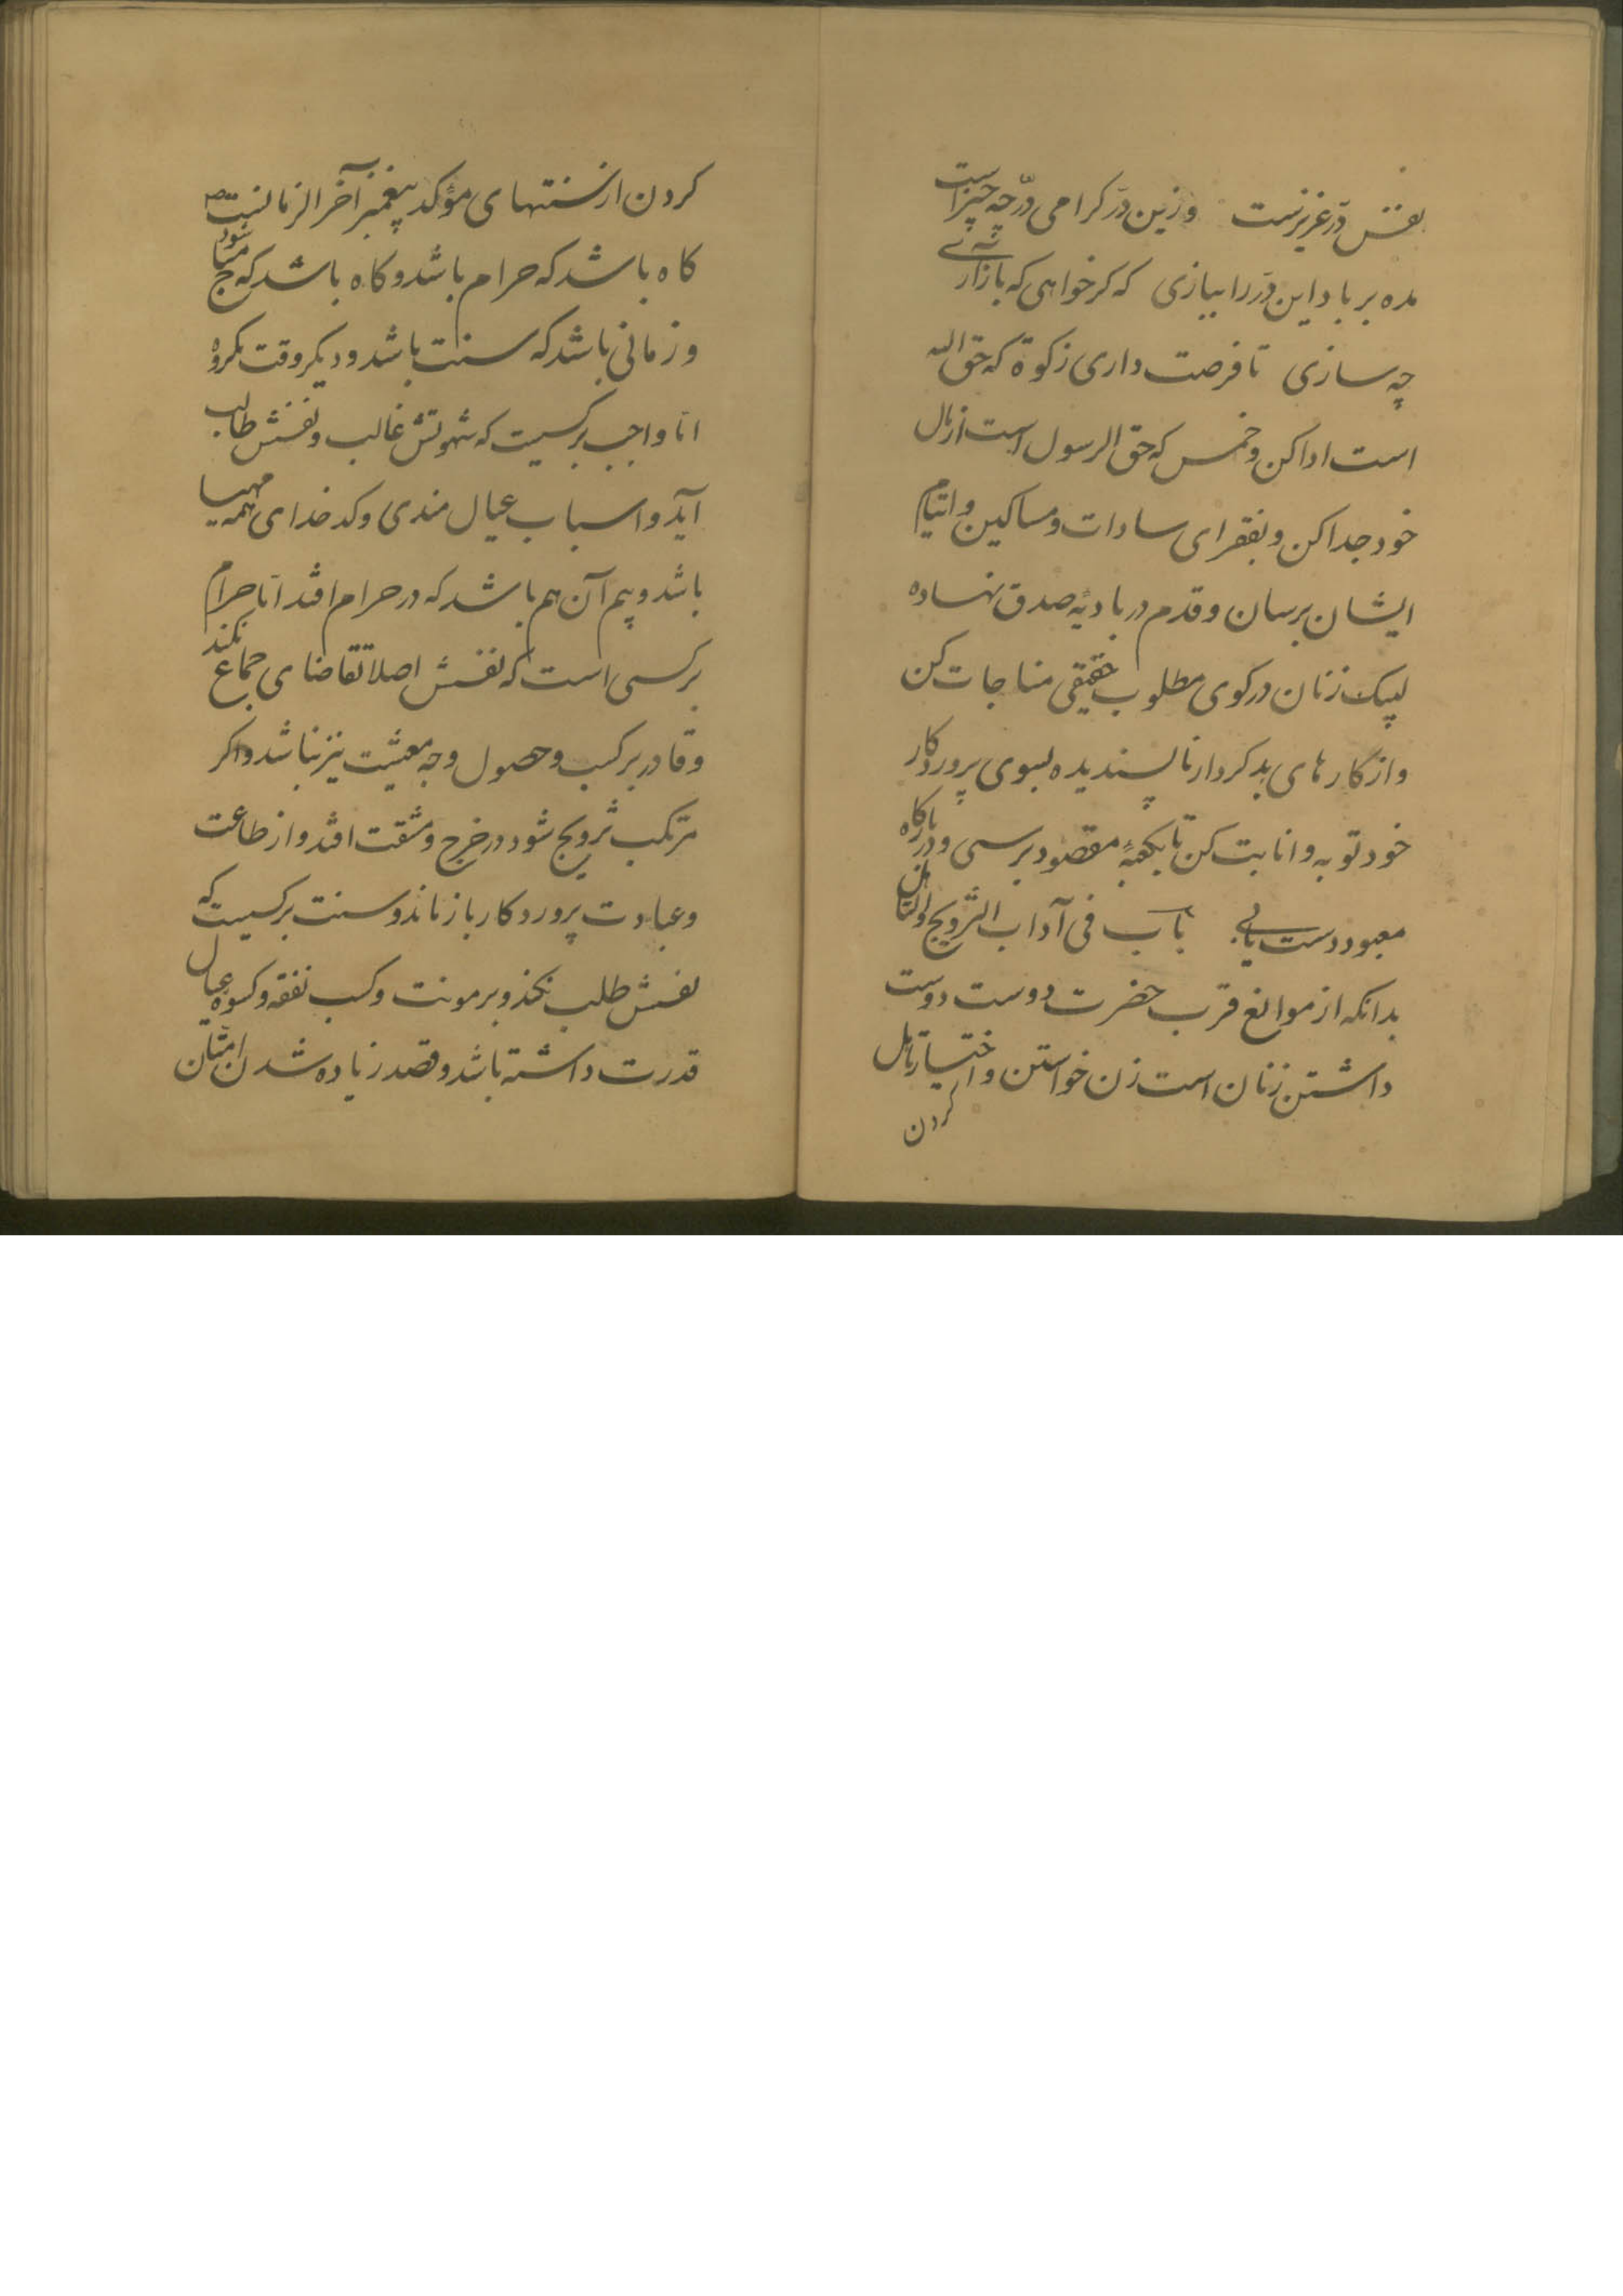 نفس درّ عزیزست وزین درّ کرامی درّ چه چیز است
مده بر باد این درّ را ببازی که کر خواهی که باز آری
چه سازی تا فرصت داری زکوة که حق الله
است ادا کن و خمس که حق الرسول است از مال
خود جدا کن و بفقرای سادات و مساکین و ایتام
ایشان برسان و قدم در بادیهٔ صدق نهاده
لبیک زنان در کوی مطلوب حقیقی مناجات کن
و از کارهای بد کردار ناپسندیده بسوی پروردکار
خود توبه و انابت کن تا بکعبهٔ مقصود برسی و در درکاه
معبود دست یابی باب فی آداب التزویج
بدانکه از موانع قرب حضرت دوست دوست
داشتن زنان است زن خواستن و اختیار تاهل
کردن
کردن از سنتهای مؤکد پیغمبر آخر الزمانست ص
کاه باشد که حرام باشد و کاه باشد که مباح شود
و زمانی باشد که سنت باشد و دیکر وقت مکروه
اما واجب بر کسیت که شهوتش غالب و نفسش طالب
آید و اسباب عیال مندی و کدخدای همه مهیا
باشد و بیم آن هم باشد که در حرام افتد اما حرام
بر کسی است که نفسش اصلا تقاضای جماع نکند
و قادر بر کسب و حصول وجه معیشت نیز نباشد و اکر
مرتکب تزویج شود در خرج و مشقت افتد و از طاعت
و عبادت پروردکار باز ماند و سنت بر کسیت که
نفسش طلب نکند و بر مونت و کسب نفقه و کسوه عیال
قدرت داشته باشد و قصد زیاده شدن امتان